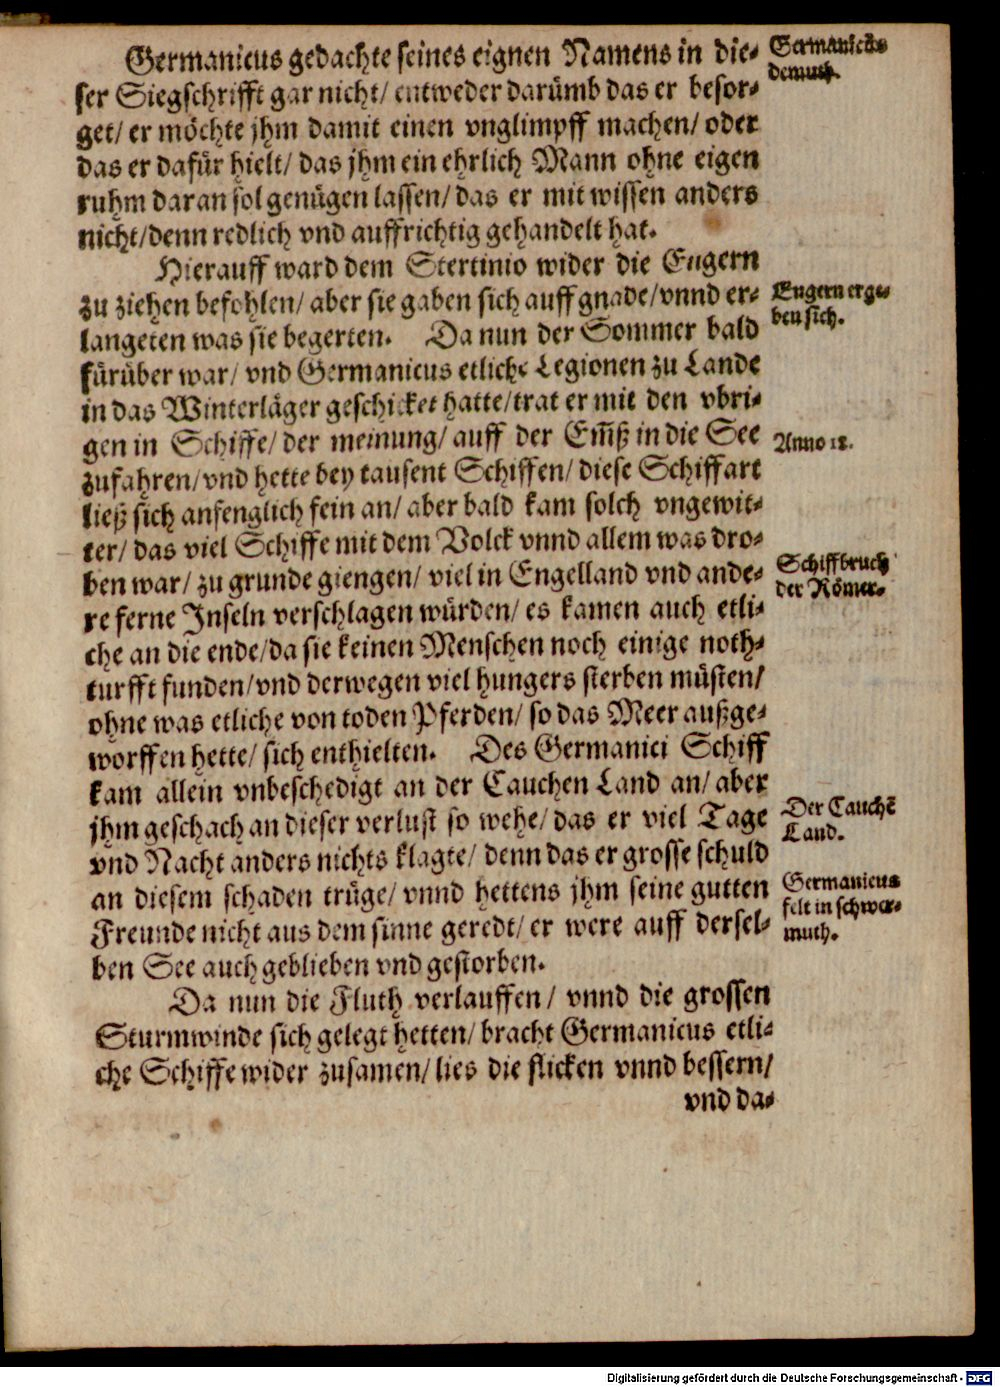 Germanicus gedachte seines eignen Namens in die-
ser Siegschrifft gar nicht/ entweder darümb das er besor-
get/ er möchte jhm damit einen vnglimpff machen/ oder
das er dafür hielt/ das jhm ein ehrlich Mann ohne eigen
ruhm daran sol genügen lassen/ das er mit wissen anders
nicht/ denn redlich vnd auffrichtig gehandelt hat.
Germanici
demuth.
Hierauff ward dem Stertinio wider die Engern
zu ziehen befohlen/ aber sie gaben sich auff gnade/ vnnd er-
langeten was sie begerten. Da nun der Sommer bald
fürüber war/ vnd Germanicus etliche Legionen zu Lande
in das Winterläger geschicket hatte/ trat er mit den vbri-
gen in Schiffe/ der meinung/ auff der Em̃ß in die See
zufahren/ vnd hette bey tausent Schiffen/ diese Schiffart
ließ sich anfenglich fein an/ aber bald kam solch vngewit-
ter/ das viel Schiffe mit dem Volck vnnd allem was dro-
ben war/ zu grunde giengen/ viel in Engelland vnd ande-
re ferne Inseln verschlagen würden/ es kamen auch etli-
che an die ende/ da sie keinen Menschen noch einige noth-
turfft funden/ vnd derwegen viel hungers sterben müsten/
ohne was etliche von toden Pferden/ so das Meer außge-
worffen hette/ sich enthielten. Des Germanici Schiff
kam allein vnbeschedigt an der Cauchen Land an/ aber
jhm geschach an dieser verlust so wehe/ das er viel Tage
vnd Nacht anders nichts klagte/ denn das er grosse schuld
an diesem schaden trüge/ vnnd hettens jhm seine gutten
Freunde nicht aus dem sinne geredt/ er were auff dersel-
ben See auch geblieben vnd gestorben.
Engern erge-
ben sich.
Anno 18.
Schiffbruch
der Römer.
Der Cauchẽ
Land.
Germanicus
felt in schwer-
muth.
Da nun die Fluth verlauffen/ vnnd die grossen
Sturmwinde sich gelegt hetten/ bracht Germanicus etli-
che Schiffe wider zusamen/ lies die flicken vnnd bessern/
vnd da-
Digitalisierung gefördert durch die Deutsche Forschungsgemeinschaft - DFG